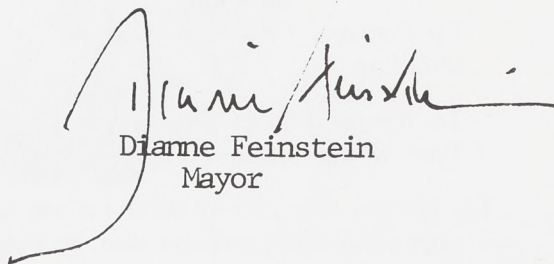 Dianne Feinstein
Dianne Feinstein
Mayor